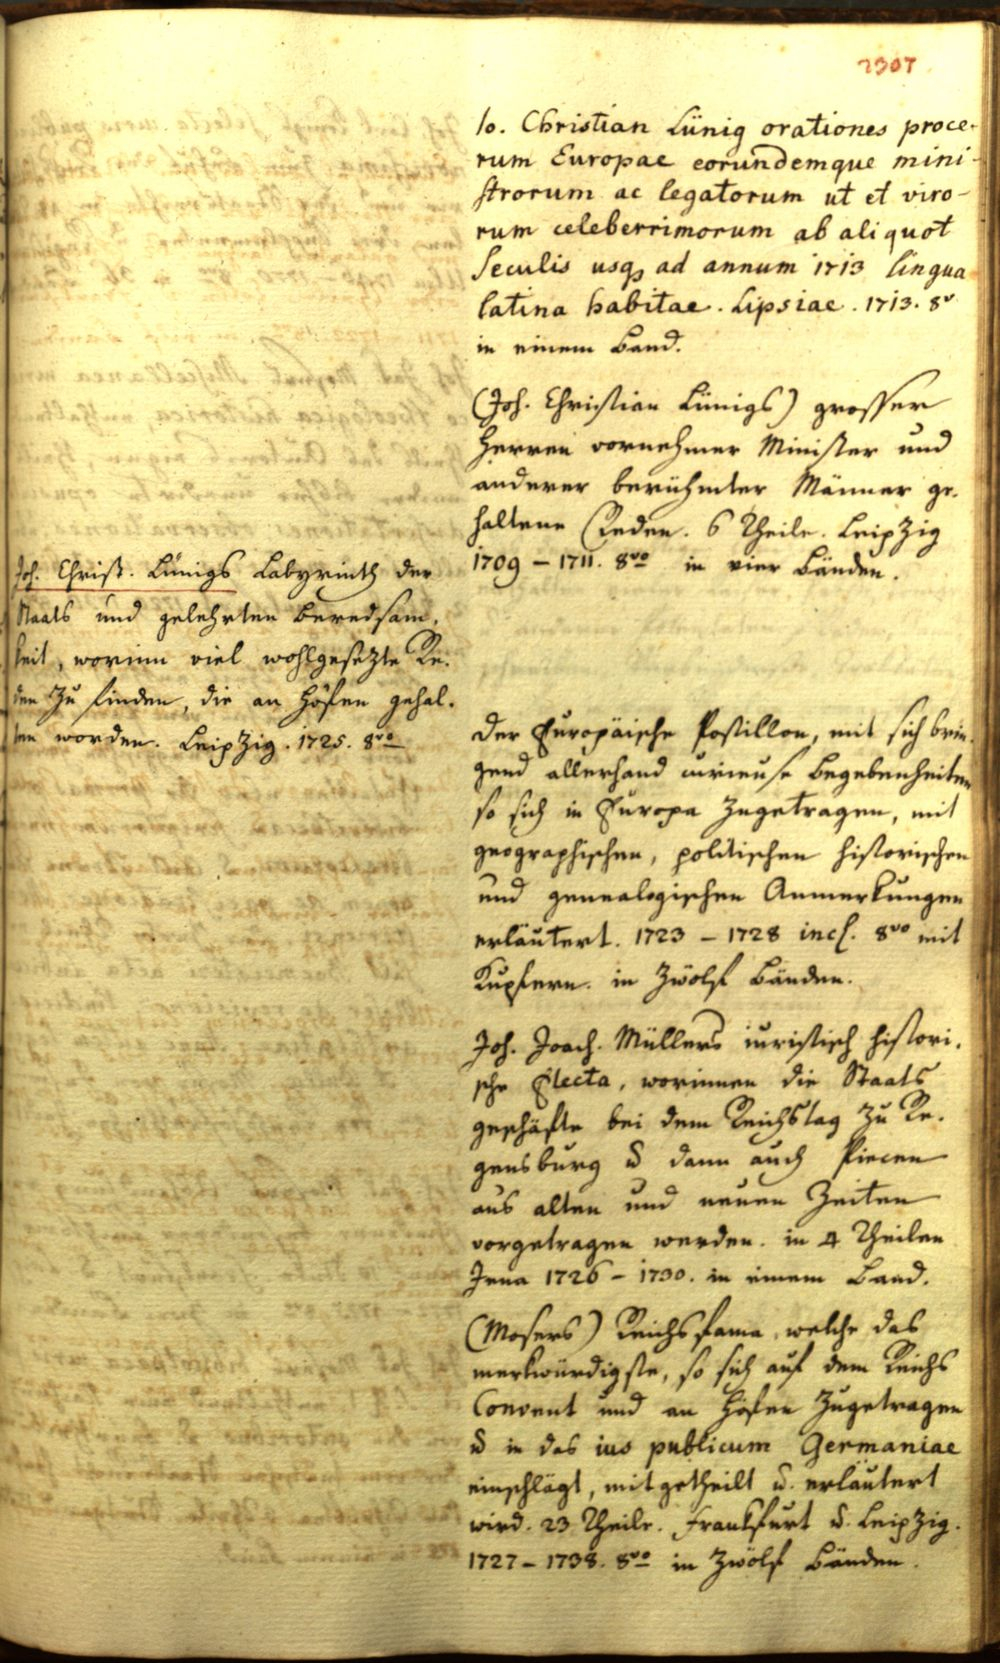 2307
Io. Christian Lünig orationes proce-
rum Europae eorundemque mini-
strorum ac legatorum ut et viro-
rum celeberrimorum ab aliquot
Seculis usq ad annum 1713 lingua
latina habitae. Lipsiae. 1713. 8v
in einem Band.
(Joh. Christian Lünigs) grosser
Herren vornehmer Minister und
anderer berühmter Männer ge-
haltene Reden. 6 Theile. Leipzig
1709 – 1711. 8vo in vier Bänden.
Joh. Christ. Lünigs Labyrinth der
Staats und gelehrten Beredsam-
keit, worinn viel wohlgesetzte Re-
den zu finden, die an Höfen gehal-
ten worden. Leipzig. 1725. 8vo
Der Europäische Postillon, mit sich brin-
gend allerhand curieuse Begebenheiten
so sich in Europa zugetragen, mit
geographischen, politischen historischen
und genealogischen Anmerkungen
erläutert. 1723 – 1728 incl. 8vo mit
Kupfern. in zwölf Bänden.
Joh. Joach. Müllers iuristisch histori-
sche Electa, worinnen die Staats
geschäfte bei dem Reichstag zu Re-
gensburg u dann auch Piecen
aus alten und neuen Zeiten
vorgetragen werden. in 4 Theilen
Jena 1726 – 1730. in einem Band.
(Mosers) Reichsfama, welche das
merkwürdigste, so sich auf dem Reichs
Convent und an Höfen zugetragen
u in das ius publicum Germaniae
einschlägt, mitgetheilt u. erläutert
wird. 23 Theile. Frankfurt u. Leipzig.
1727 – 1738. 8vo in zwölf Bänden.